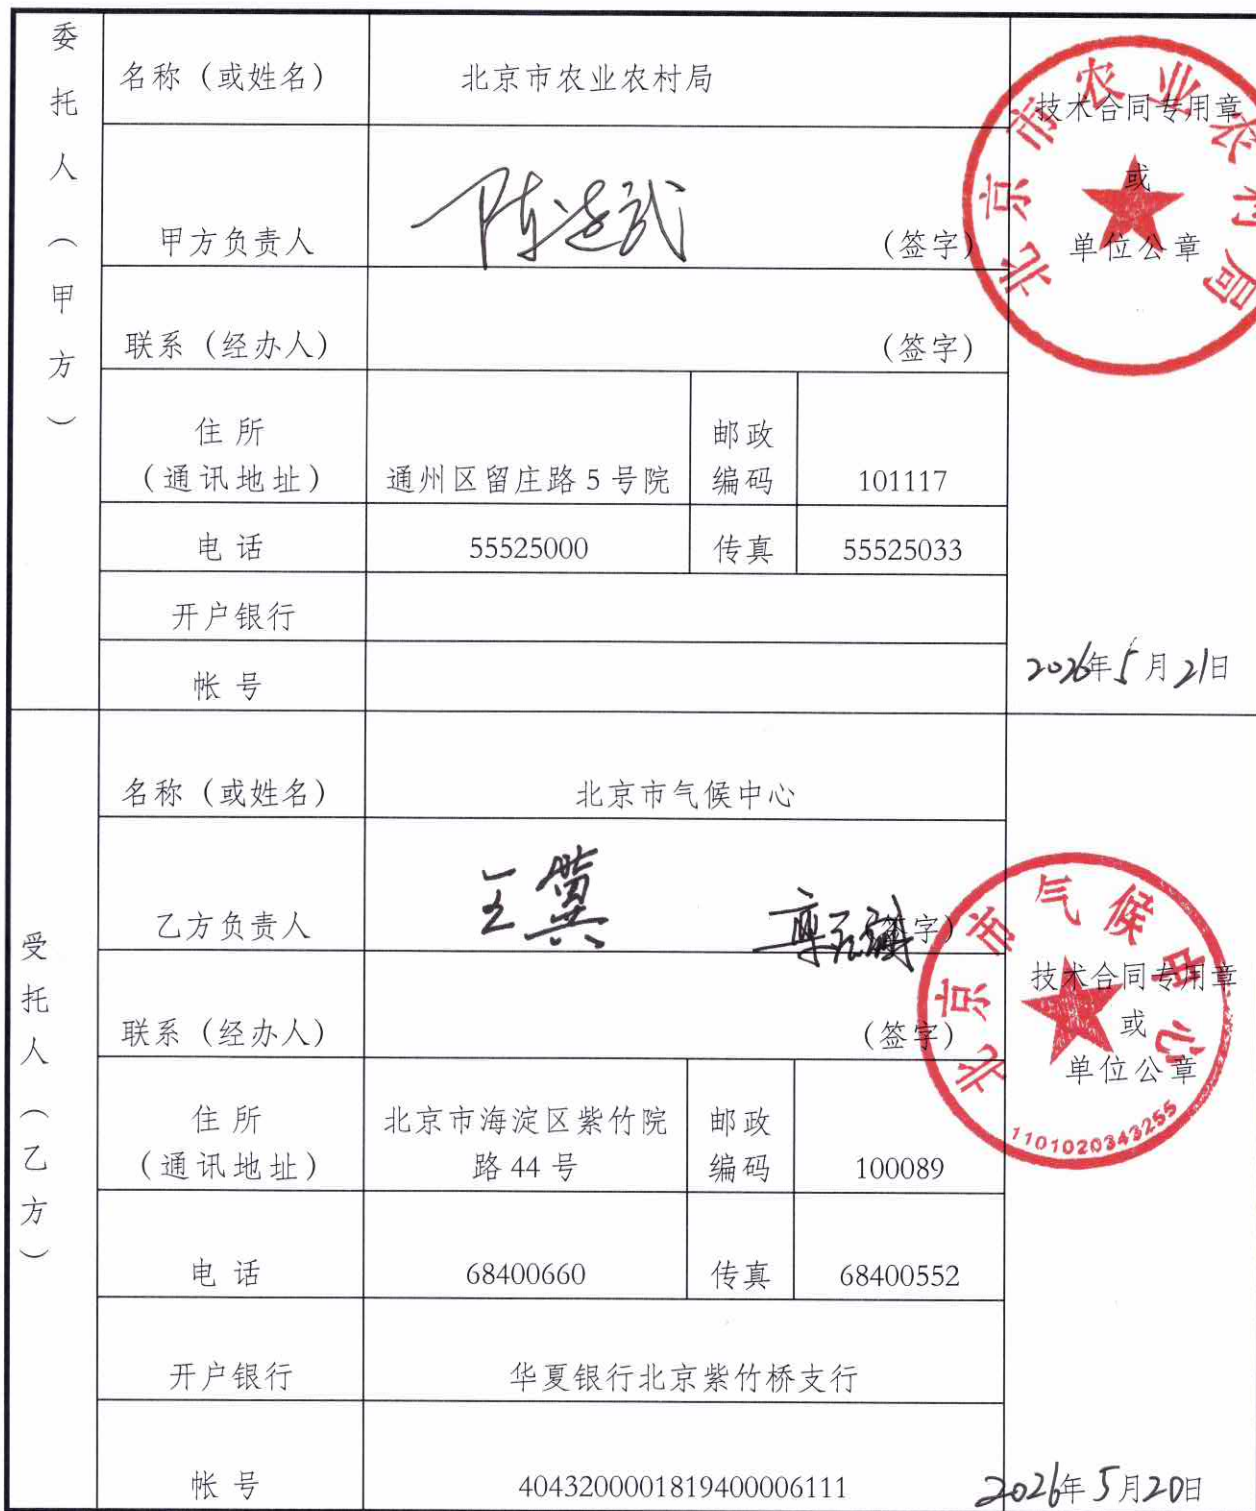 委托人（甲方）
名称（或姓名） 北京市农业农村局
甲方负责人 (签字)
联系（经办人） (签字)
住 所
（通讯地址） 通州区留庄路 5 号院 邮政编码 101117
电 话 55525000 传真 55525033
开户银行
帐 号
技术合同专用章
或
单位公章
北京市农业农村局
2026年5月21日
受托人（乙方）
名称（或姓名） 北京市气候中心
乙方负责人 王冀 (签字)
联系（经办人） (签字)
住 所
（通讯地址） 北京市海淀区紫竹院
路 44 号 邮政编码 100089
电 话 68400660 传真 68400552
开户银行 华夏银行北京紫竹桥支行
帐 号 4043200001819400006111
技术合同专用章
或
单位公章
北京市气候中心
1101020343255
2026年5月20日